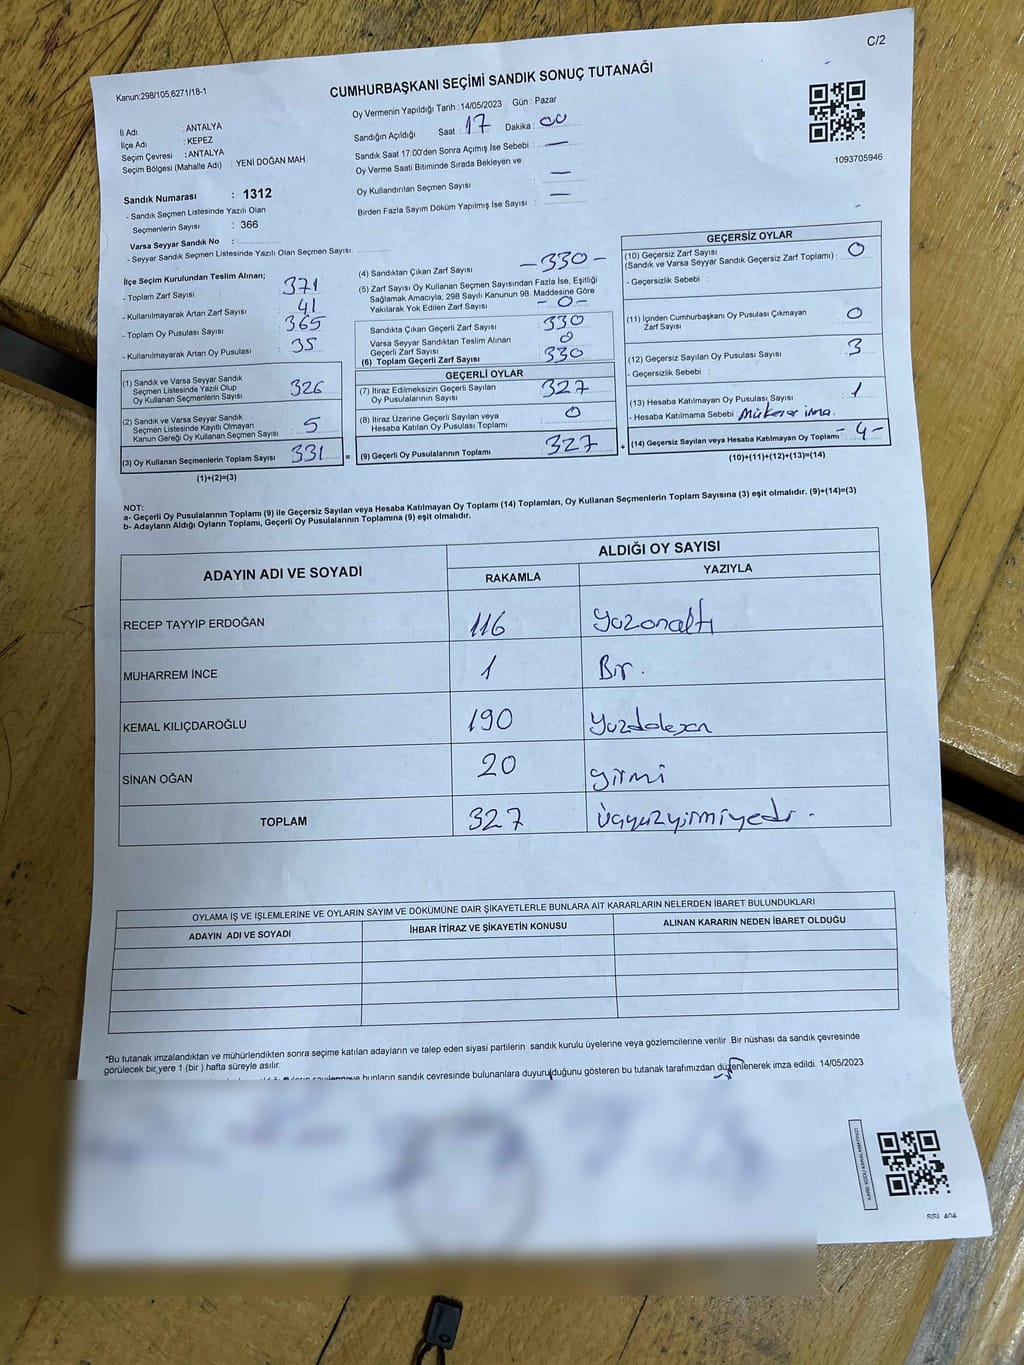 C/2
Kanun:298/105,6271/18-1
CUMHURBAŞKANI SEÇİMİ SANDIK SONUÇ TUTANAĞI
Oy Vermenin Yapıldığı Tarih :14/05/2023 Gün : Pazar
Sandığın Açıldığı Saat : 17 Dakika : 00
Sandık Saat 17:00'den Sonra Açımış İse Sebebi : —
Oy Verme Saati Bitiminde Sırada Bekleyen ve
Oy Kullandırılan Seçmen Sayısı : —
Birden Fazla Sayım Döküm Yapılmış İse Sayısı : —
1093705946
İl Adı : ANTALYA
İlçe Adı : KEPEZ
Seçim Çevresi : ANTALYA
Seçim Bölgesi (Mahalle Adı) : YENİ DOĞAN MAH.
Sandık Numarası : 1312
- Sandık Seçmen Listesinde Yazılı Olan
Seçmenlerin Sayısı : 366
Varsa Seyyar Sandık No :
- Seyyar Sandık Seçmen Listesinde Yazılı Olan Seçmen Sayısı:
İlçe Seçim Kurulundan Teslim Alınan;
- Toplam Zarf Sayısı 371
- Kullanılmayarak Artan Zarf Sayısı 41
- Toplam Oy Pusulası Sayısı 365
- Kullanılmayarak Artan Oy Pusulası 35
(1) Sandık ve Varsa Seyyar Sandık
Seçmen Listesinde Yazılı Olup
Oy Kullanan Seçmenlerin Sayısı 326
(2) Sandık ve Varsa Seyyar Sandık
Seçmen Listesinde Kayıtlı Olmayan
Kanun Gereği Oy Kullanan Seçmen Sayısı 5
(3) Oy Kullanan Seçmenlerin Toplam Sayısı 331 =
(1)+(2)=(3)
(4) Sandıktan Çıkan Zarf Sayısı - 330 -
(5) Zarf Sayısı Oy Kullanan Seçmen Sayısından Fazla İse, Eşitliği
Sağlamak Amacıyla; 298 Sayılı Kanunun 98. Maddesine Göre
Yakılarak Yok Edilen Zarf Sayısı - 0 -
Sandıkta Çıkan Geçerli Zarf Sayısı 330
Varsa Seyyar Sandıktan Teslim Alınan
Geçerli Zarf Sayısı 0
(6) Toplam Geçerli Zarf Sayısı 330
GEÇERLİ OYLAR
(7) İtiraz Edilmeksizin Geçerli Sayılan
Oy Pusulasının Sayısı 327
(8) İtiraz Üzerine Geçerli Sayılan veya
Hesaba Katılan Oy Pusulası Toplamı 0
(9) Geçerli Oy Pusulalarının Toplamı 327 +
GEÇERSİZ OYLAR
(10) Geçersiz Zarf Sayısı
(Sandık ve Varsa Seyyar Sandık Geçersiz Zarf Toplamı) : 0
- Geçersizlik Sebebi :
(11) İçinden Cumhurbaşkanı Oy Pusulası Çıkmayan
Zarf Sayısı 0
(12) Geçersiz Sayılan Oy Pusulası Sayısı 3
- Geçersizlik Sebebi :
(13) Hesaba Katılmayan Oy Pusulası Sayısı 1
- Hesaba Katılmama Sebebi : Mükerer imza.
(14) Geçersiz Sayılan veya Hesaba Katılmayan Oy Toplamı - 4 -
(10)+(11)+(12)+(13)=(14)
NOT:
a- Geçerli Oy Pusulalarının Toplamı (9) ile Geçersiz Sayılan veya Hesaba Katılmayan Oy Toplamı (14) Toplamları, Oy Kullanan Seçmenlerin Toplam Sayısına (3) eşit olmalıdır. (9)+(14)=(3)
b- Adayların Aldığı Oyların Toplamı, Geçerli Oy Pusulalarının Toplamına (9) eşit olmalıdır.
ADAYIN ADI VE SOYADI ALDIĞI OY SAYISI
RAKAMLA YAZIYLA
RECEP TAYYİP ERDOĞAN 116 yüzonaltı
MUHARREM İNCE 1 Bir.
KEMAL KILIÇDAROĞLU 190 yüzdoksan
SİNAN OĞAN 20 yirmi
TOPLAM 327 üçyüzyirmiyedi.
OYLAMA İŞ VE İŞLEMLERİNE VE OYLARIN SAYIM VE DÖKÜMÜNE DAİR ŞİKAYETLERLE BUNLARA AİT KARARLARIN NELERDEN İBARET BULUNDUKLARI
ADAYIN ADI VE SOYADI İHBAR İTİRAZ VE ŞİKAYETİN KONUSU ALINAN KARARIN NEDEN İBARET OLDUĞU
*Bu tutanak imzalandıktan ve mühürlendikten sonra seçime katılan adayların ve talep eden siyasi partilerin sandık kurulu üyelerine veya gözlemcilerine verilir .Bir nüshası da sandık çevresinde
görülecek bir yere 1 (bir ) hafta süreyle asılır.
bunların sandık çevresinde bulunanlara duyurulduğunu gösteren bu tutanak tarafımızdan düzenlenerek imza edildi. 14/05/2023